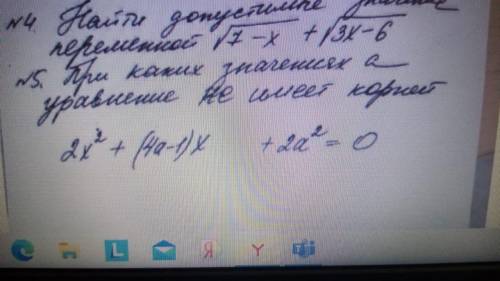 №4. Найти допустимые
переменной √7-x + √3x-6
№5. При каких значениях а
уравнение не имеет корней
2x² + (4a-1)x + 2a² = 0
L Я Y